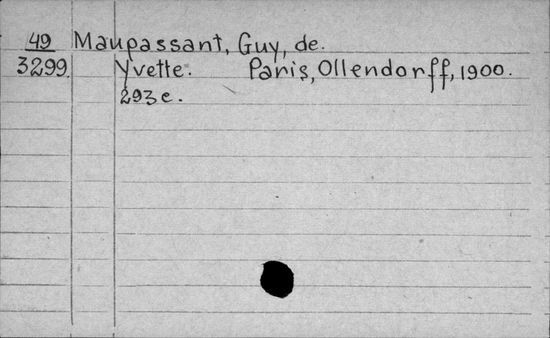 49 Maupassant, Guy, de.
3299. Yvette. Paris, Ollendorff, 1900.
293 c.